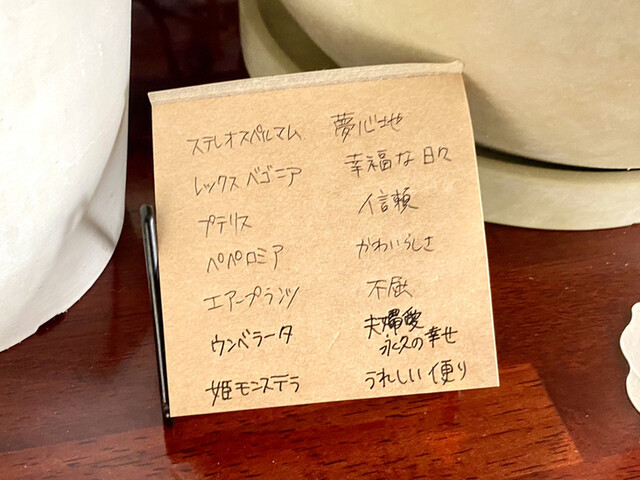 ステレオスペルマム 夢心地
レックスベゴニア 幸福な日々
プテリス 信頼
ペペロミア かわいらしさ
エアープランツ 不屈
ウンベラータ 夫婦愛
永久の幸せ
姫モンステラ うれしい便り